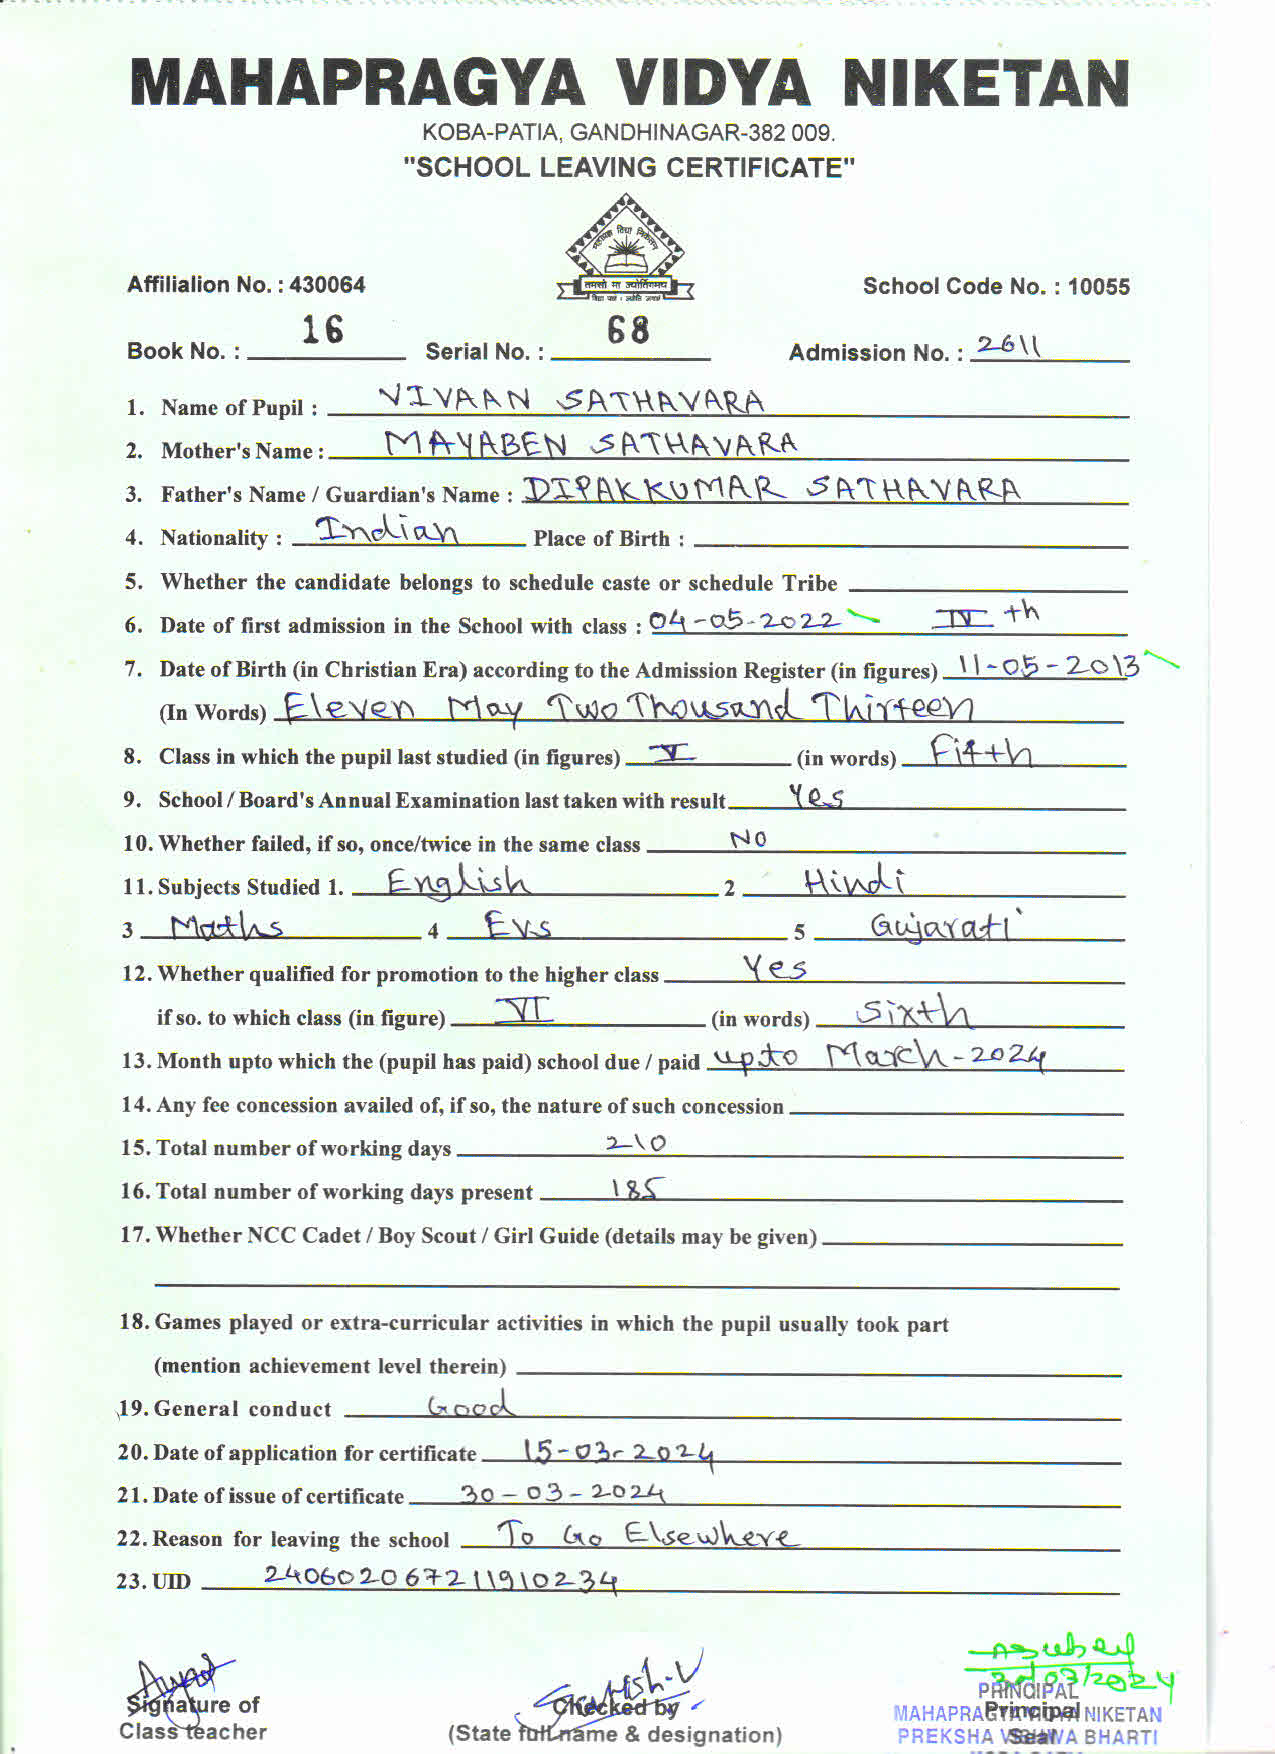 MAHAPRAGYA VIDYA NIKETAN
KOBA-PATIA, GANDHINAGAR-382 009.
"SCHOOL LEAVING CERTIFICATE"
महाप्रज्ञ विद्या निकेतन
तमसो मा ज्योतिर्गमय
Affilialion No. : 430064 School Code No. : 10055
Book No. : 16 Serial No. : 68 Admission No. : 2611
1. Name of Pupil : VIVAAN SATHAVARA
2. Mother's Name : MAYABEN SATHAVARA
3. Father's Name / Guardian's Name : DIPAKKUMAR SATHAVARA
4. Nationality : Indian Place of Birth :
5. Whether the candidate belongs to schedule caste or schedule Tribe
6. Date of first admission in the School with class : 04-05-2022 IV th
7. Date of Birth (in Christian Era) according to the Admission Register (in figures) 11-05-2013
(In Words) Eleven May Two Thousand Thirteen
8. Class in which the pupil last studied (in figures) V (in words) Fifth
9. School / Board's Annual Examination last taken with result Yes
10. Whether failed, if so, once/twice in the same class NO
11. Subjects Studied 1. English 2 Hindi
3 Maths 4 Evs 5 Gujarati
12. Whether qualified for promotion to the higher class Yes
if so. to which class (in figure) VI (in words) Sixth
13. Month upto which the (pupil has paid) school due / paid upto March-2024
14. Any fee concession availed of, if so, the nature of such concession
15. Total number of working days 210
16. Total number of working days present 185
17. Whether NCC Cadet / Boy Scout / Girl Guide (details may be given)
18. Games played or extra-curricular activities in which the pupil usually took part
(mention achievement level therein)
19. General conduct Good
20. Date of application for certificate 15-03-2024
21. Date of issue of certificate 30-03-2024
22. Reason for leaving the school To Go Elsewhere
23. UID 240602067211910234
30/03/2024
PRINCIPAL
Signature of Checked by Principal
MAHAPRAGYA VIDYA NIKETAN
Class teacher (State full name & designation) Seal
PREKSHA VISHWA BHARTI